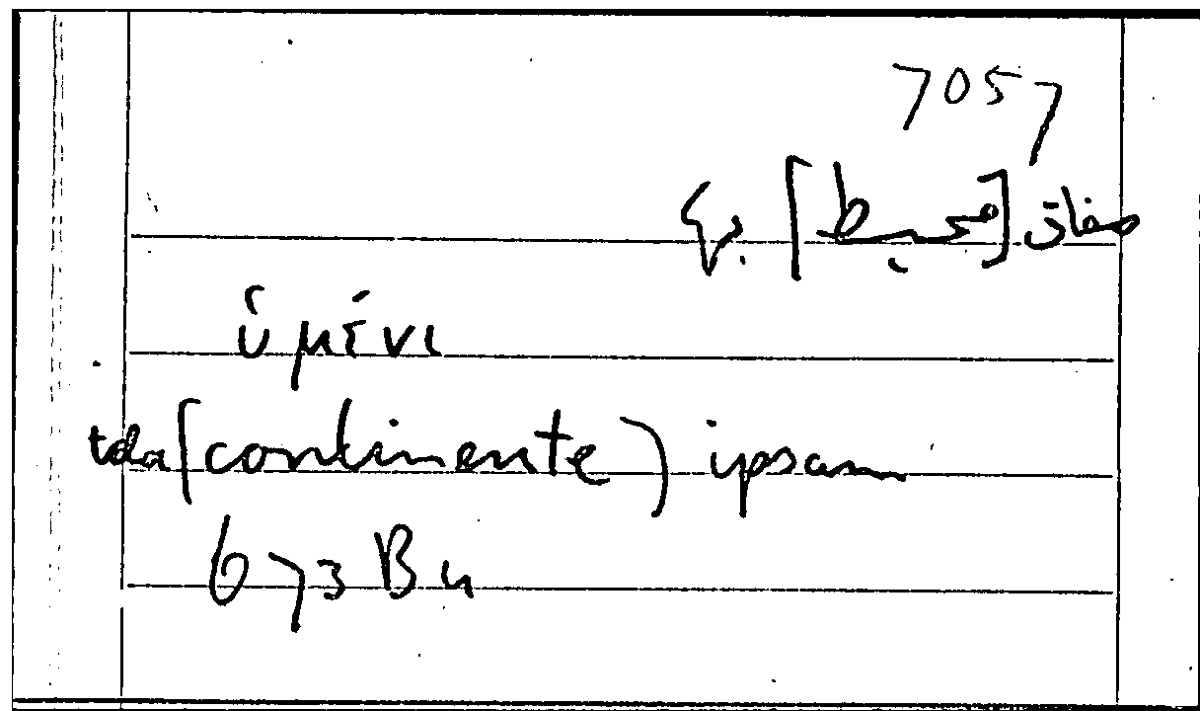 7057
صفاق [محيط] به
ὑμένι
tela (continente) ipsam
673 B 4